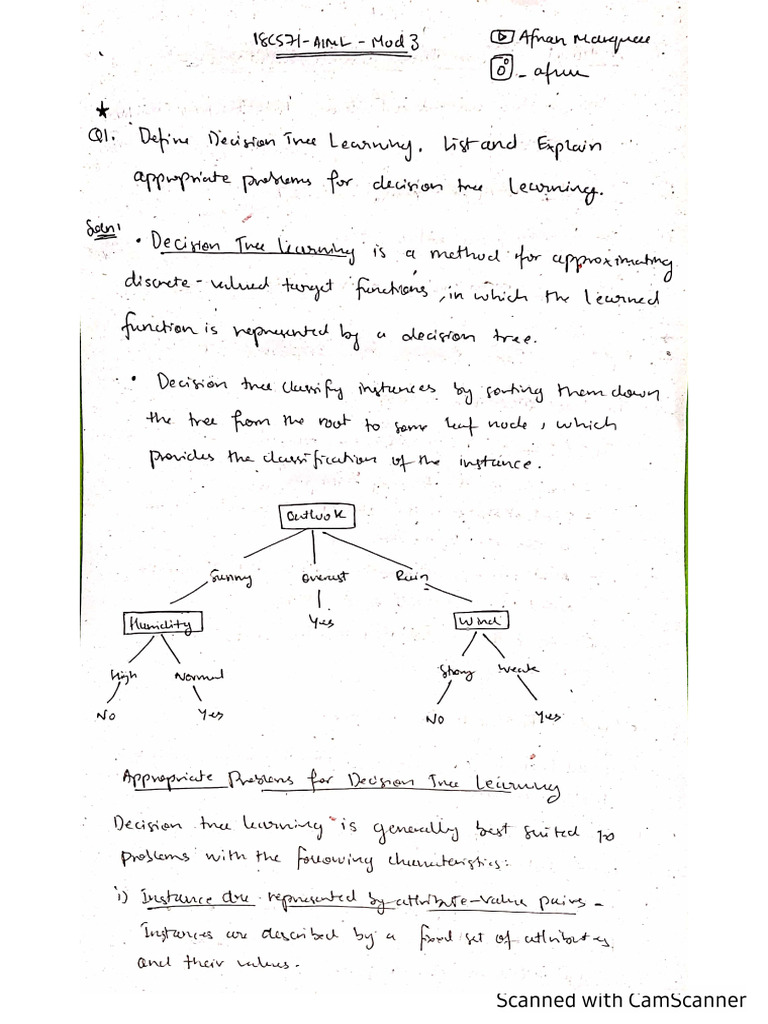 18CS71-AIML-Mod 3
Afnan Marquee
_afnn
Q1. Define Decision Tree Learning. List and Explain
appropriate problems for decision tree learning.
Soln:
• Decision Tree learning is a method for approximating
discrete-valued target functions, in which the learned
function is represented by a decision tree.
• Decision tree classify instances by sorting them down
the tree from the root to some leaf node, which
provides the classification of the instance.
Outlook
Sunny Overcast Rain
Humidity Yes Wind
High Normal Strong Weak
No Yes No Yes
Appropriate Problems for Decision Tree Learning
Decision tree learning is generally best suited to
problems with the following characteristics:
i) Instance are represented by attribute-value pairs -
Instances are described by a fixed set of attributes
and their values.
Scanned with CamScanner